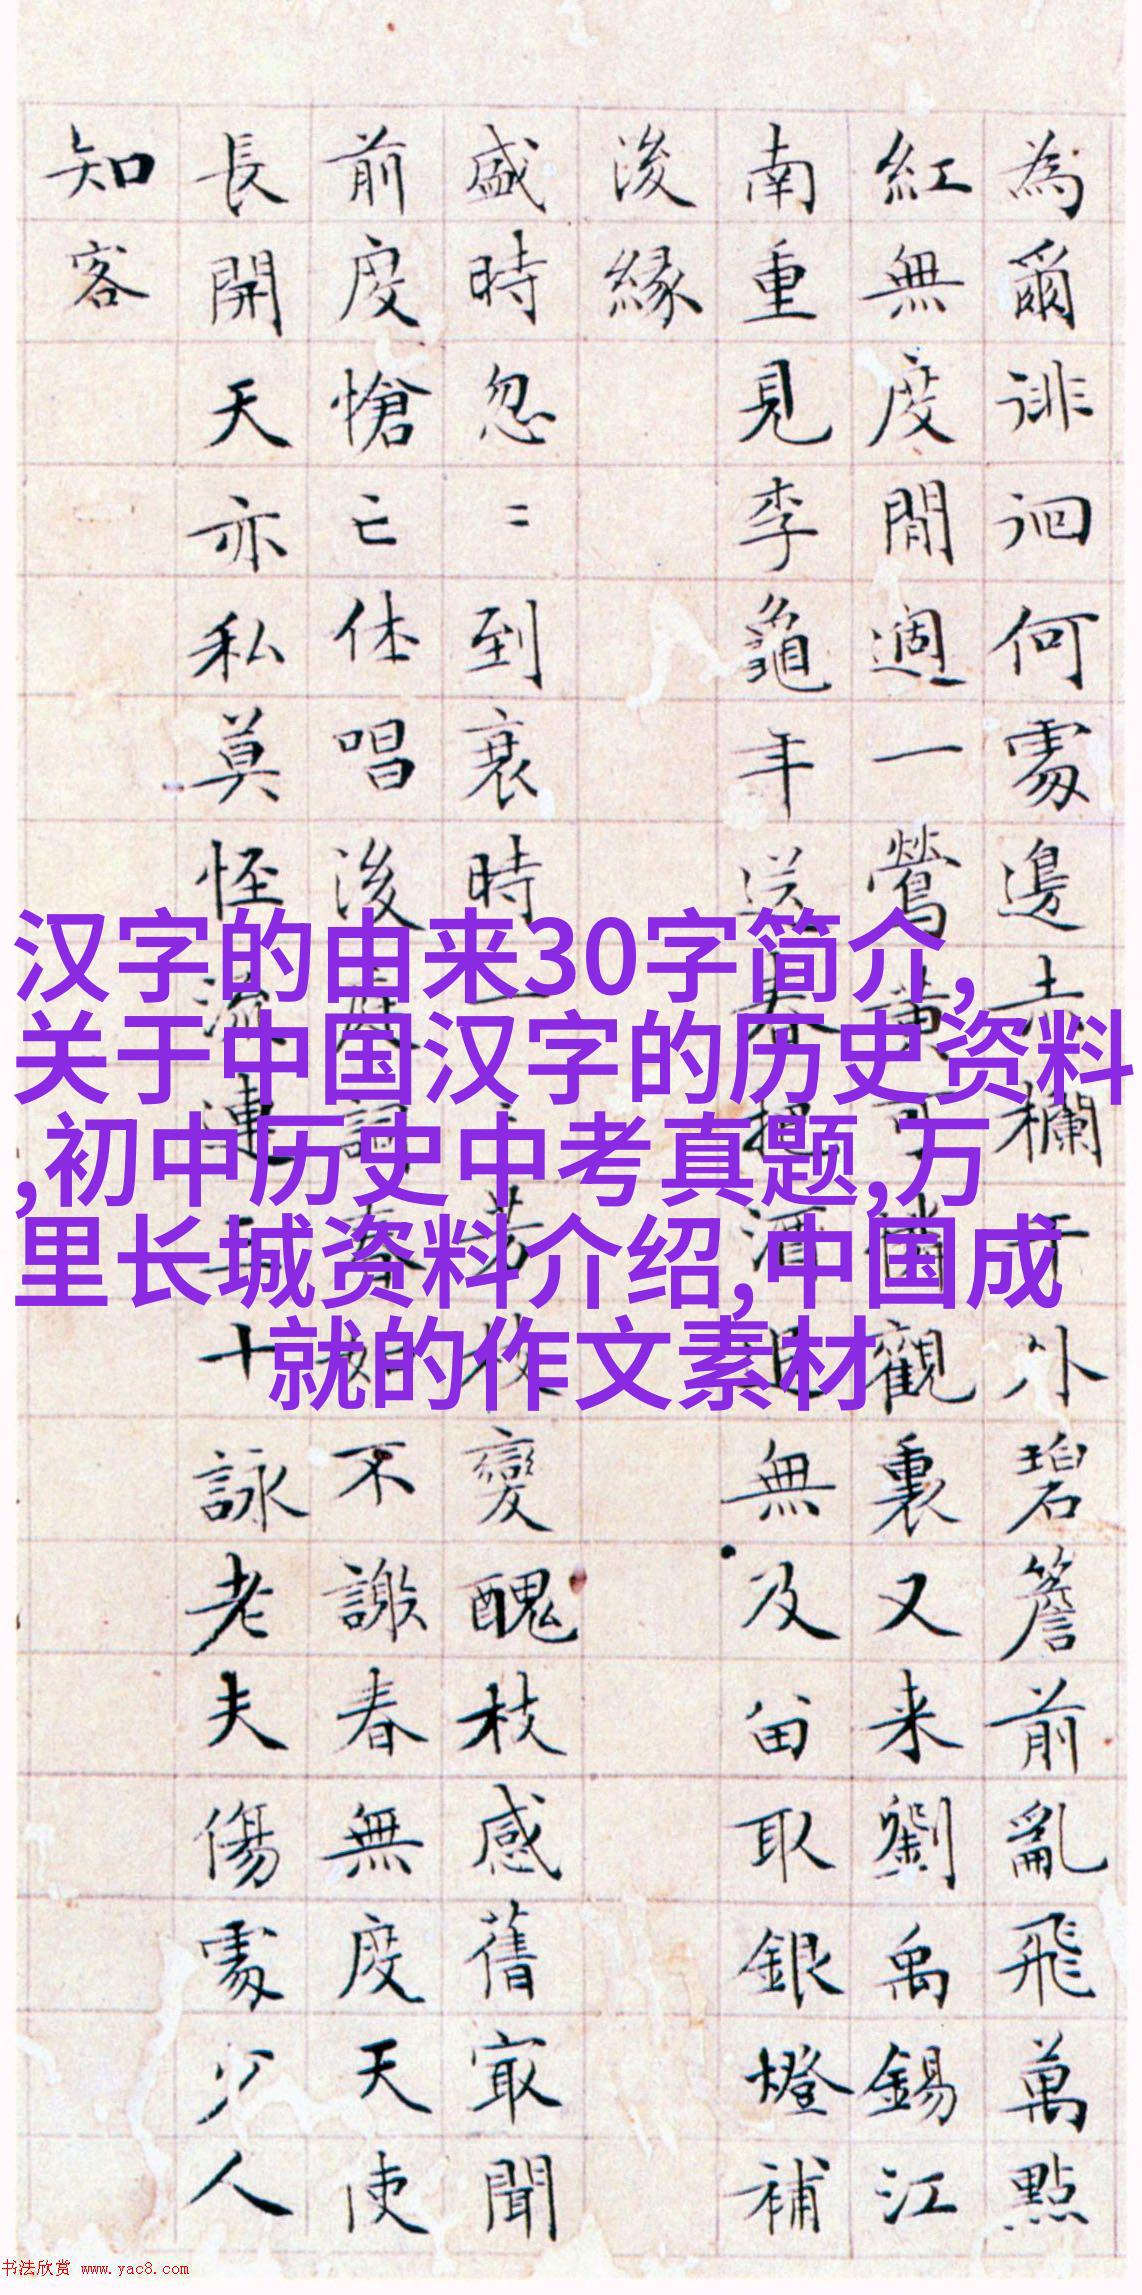 為爾徘徊何處邊赤欄干外碧簷前亂飛萬點
紅無度閒週一鶯黃可惜觀裏又来劉禹錫江
南重見李龜年送春把酒且無及留取銀燈補
後緣
盛時忽〻到衰時一一芳枝變醜枝感舊最聞
前度愴亡休唱後庭詞春如不謝春無度天使
長開天亦私莫怪流連三十詠老夫傷處少人
知客
汉字的由来30字简介,
关于中国汉字的历史资料
,初中历史中考真题,万
里长城资料介绍,中国成
就的作文素材
书法欣赏 www.yac8.com